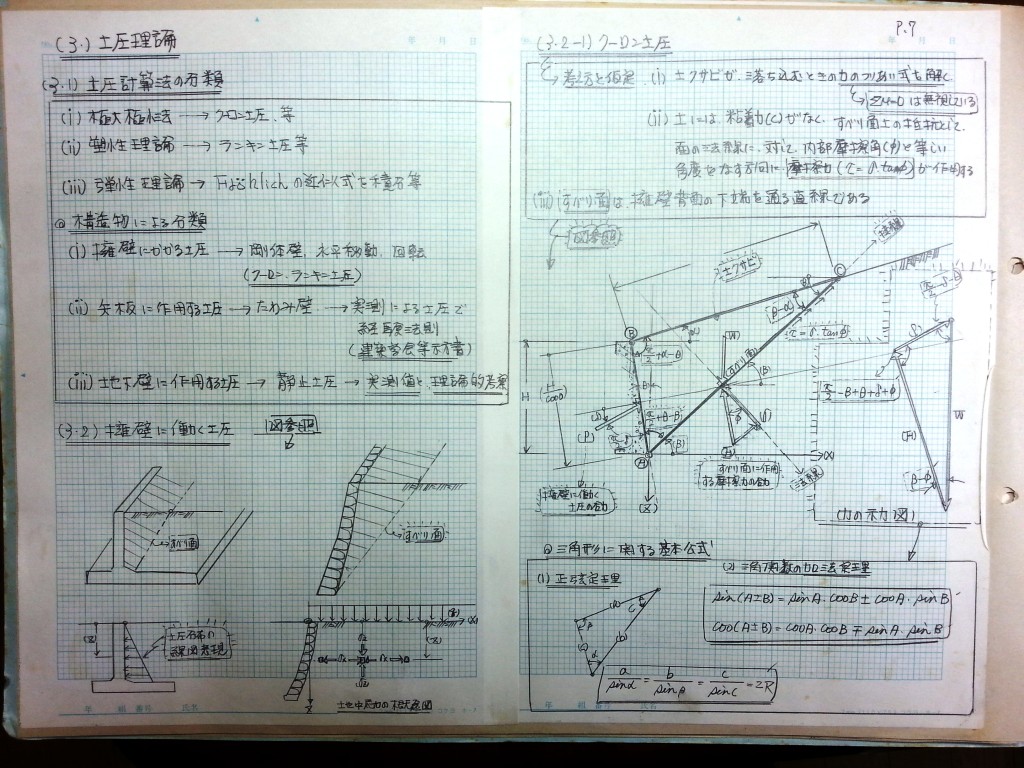 (3.) 土圧理論
(3.1) 土圧計算法の分類
(i) 極大極小法 → クーロン土圧、等
(ii) 塑性理論 → ランキン土圧等
(iii) 弾性理論 → Fröhlichの近似式を積石等
◎ 構造物による分類
(i) 擁壁にかかる土圧 → 剛体壁、水平移動、回転
(クーロン、ランキン土圧)
(ii) 矢板に作用する土圧 → たわみ壁 → 実測による土圧で
経験法則
(建築学会等示方書)
(iii) 地下壁に作用する土圧 → 静止土圧 → 実測値と理論的考察
(3.2) 擁壁に働く土圧 図参照
すべり面
すべり面
(z)
土圧分布の
概図表現
(q)
(x)
(z)
σz
σx
σx
σz
z
土地中応力の概念図
年 組 番号 氏名
P.7
年 月 日
(3.2-1) クーロン土圧
考え方と仮定 (i) 土クサビが落ち込むときの力のつりあい式を解く
ΣM=0は無視している
(ii) 土には、粘着力(c)がなく、すべり面上の抵抗として、
面の法線に対して、内部摩擦角(φ)と等しい
角度をなす方向に摩擦力(τ=σ.tanφ)が作用する
(iii) すべり面は擁壁背面の下端を通る直線である
図参照
土クサビ
法線
C
π/2-δ-θ
β-α
τ=σ.tanφ
B
α
π/2+α-θ
(W)
すべり面
(β)
H
H/cosθ
(δ)
(P)
π/2+θ-β
A
(β)
φ
(R)
(x)
(z)
擁壁に働く
土圧の合力
すべり面に作用
する摩擦力の合力
法線
(P)
π/2-β+θ+δ+φ
(R)
W
β-φ
(力の示力図)
◎ 三角形に関する基本公式
(1) 正弦定理
(2) 三角関数の加法定理
sin(A±B)=sinA・cosB±cosA・sinB
cos(A±B)=cosA・cosB∓sinA・sinB
a/sinα = b/sinβ = c/sinC = 2R
年 組 番号 氏名